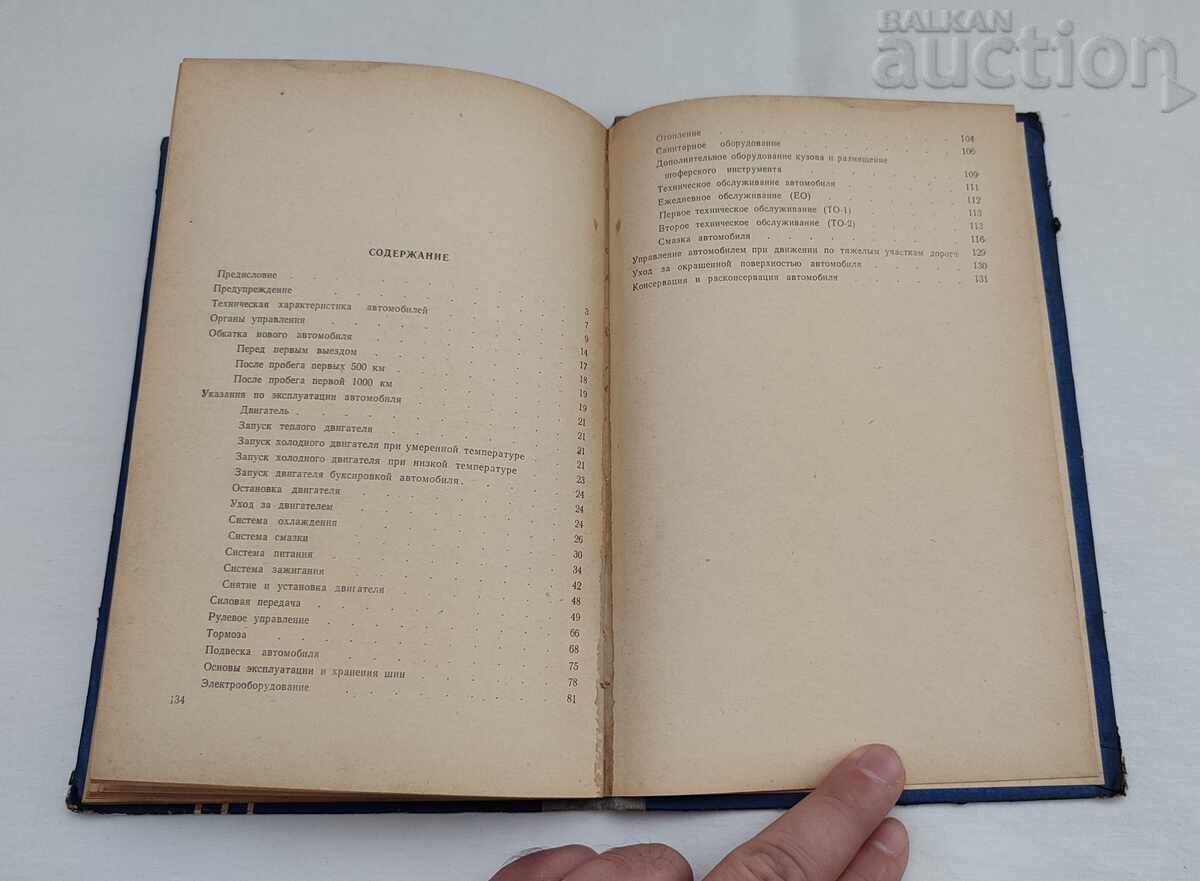 BALKAN
auction
СОДЕРЖАНИЕ
Предисловие
Предупреждение 3
Техническая характеристика автомобилей 7
Органы управления 9
Обкатка нового автомобиля 14
Перед первым выездом 17
После пробега первых 500 км 18
После пробега первой 1000 км 19
Указания по эксплуатации автомобиля 19
Двигатель 21
Запуск теплого двигателя 21
Запуск холодного двигателя при умеренной температуре 21
Запуск холодного двигателя при низкой температуре 21
Запуск двигателя буксировкой автомобиля 23
Остановка двигателя 24
Уход за двигателем 24
Система охлаждения 24
Система смазки 26
Система питания 30
Система зажигания 34
Снятие и установка двигателя 42
Силовая передача 48
Рулевое управление 49
Тормоза 66
Подвеска автомобиля 68
Основы эксплуатации и хранения шин 75
Электрооборудование 78
81
134
Отопление 104
Санитарное оборудование 106
Дополнительное оборудование кузова и размещение
шоферского инструмента 109
Техническое обслуживание автомобиля 111
Ежедневное обслуживание (ЕО) 112
Первое техническое обслуживание (ТО-1) 113
Второе техническое обслуживание (ТО-2) 113
Смазка автомобиля 116
Управление автомобилем при движении по тяжелым участкам дороги 129
Уход за окрашенной поверхностью автомобиля 130
Консервация и расконсервация автомобиля 131